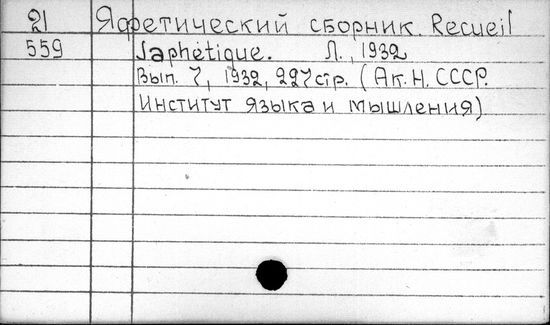 21 Яфетический сборник. Recueil
559 Japhétique. Л., 1932
Вып. 7, 1932, 227 стр. (Ак. Н. СССР.
Институт языка и мышления)